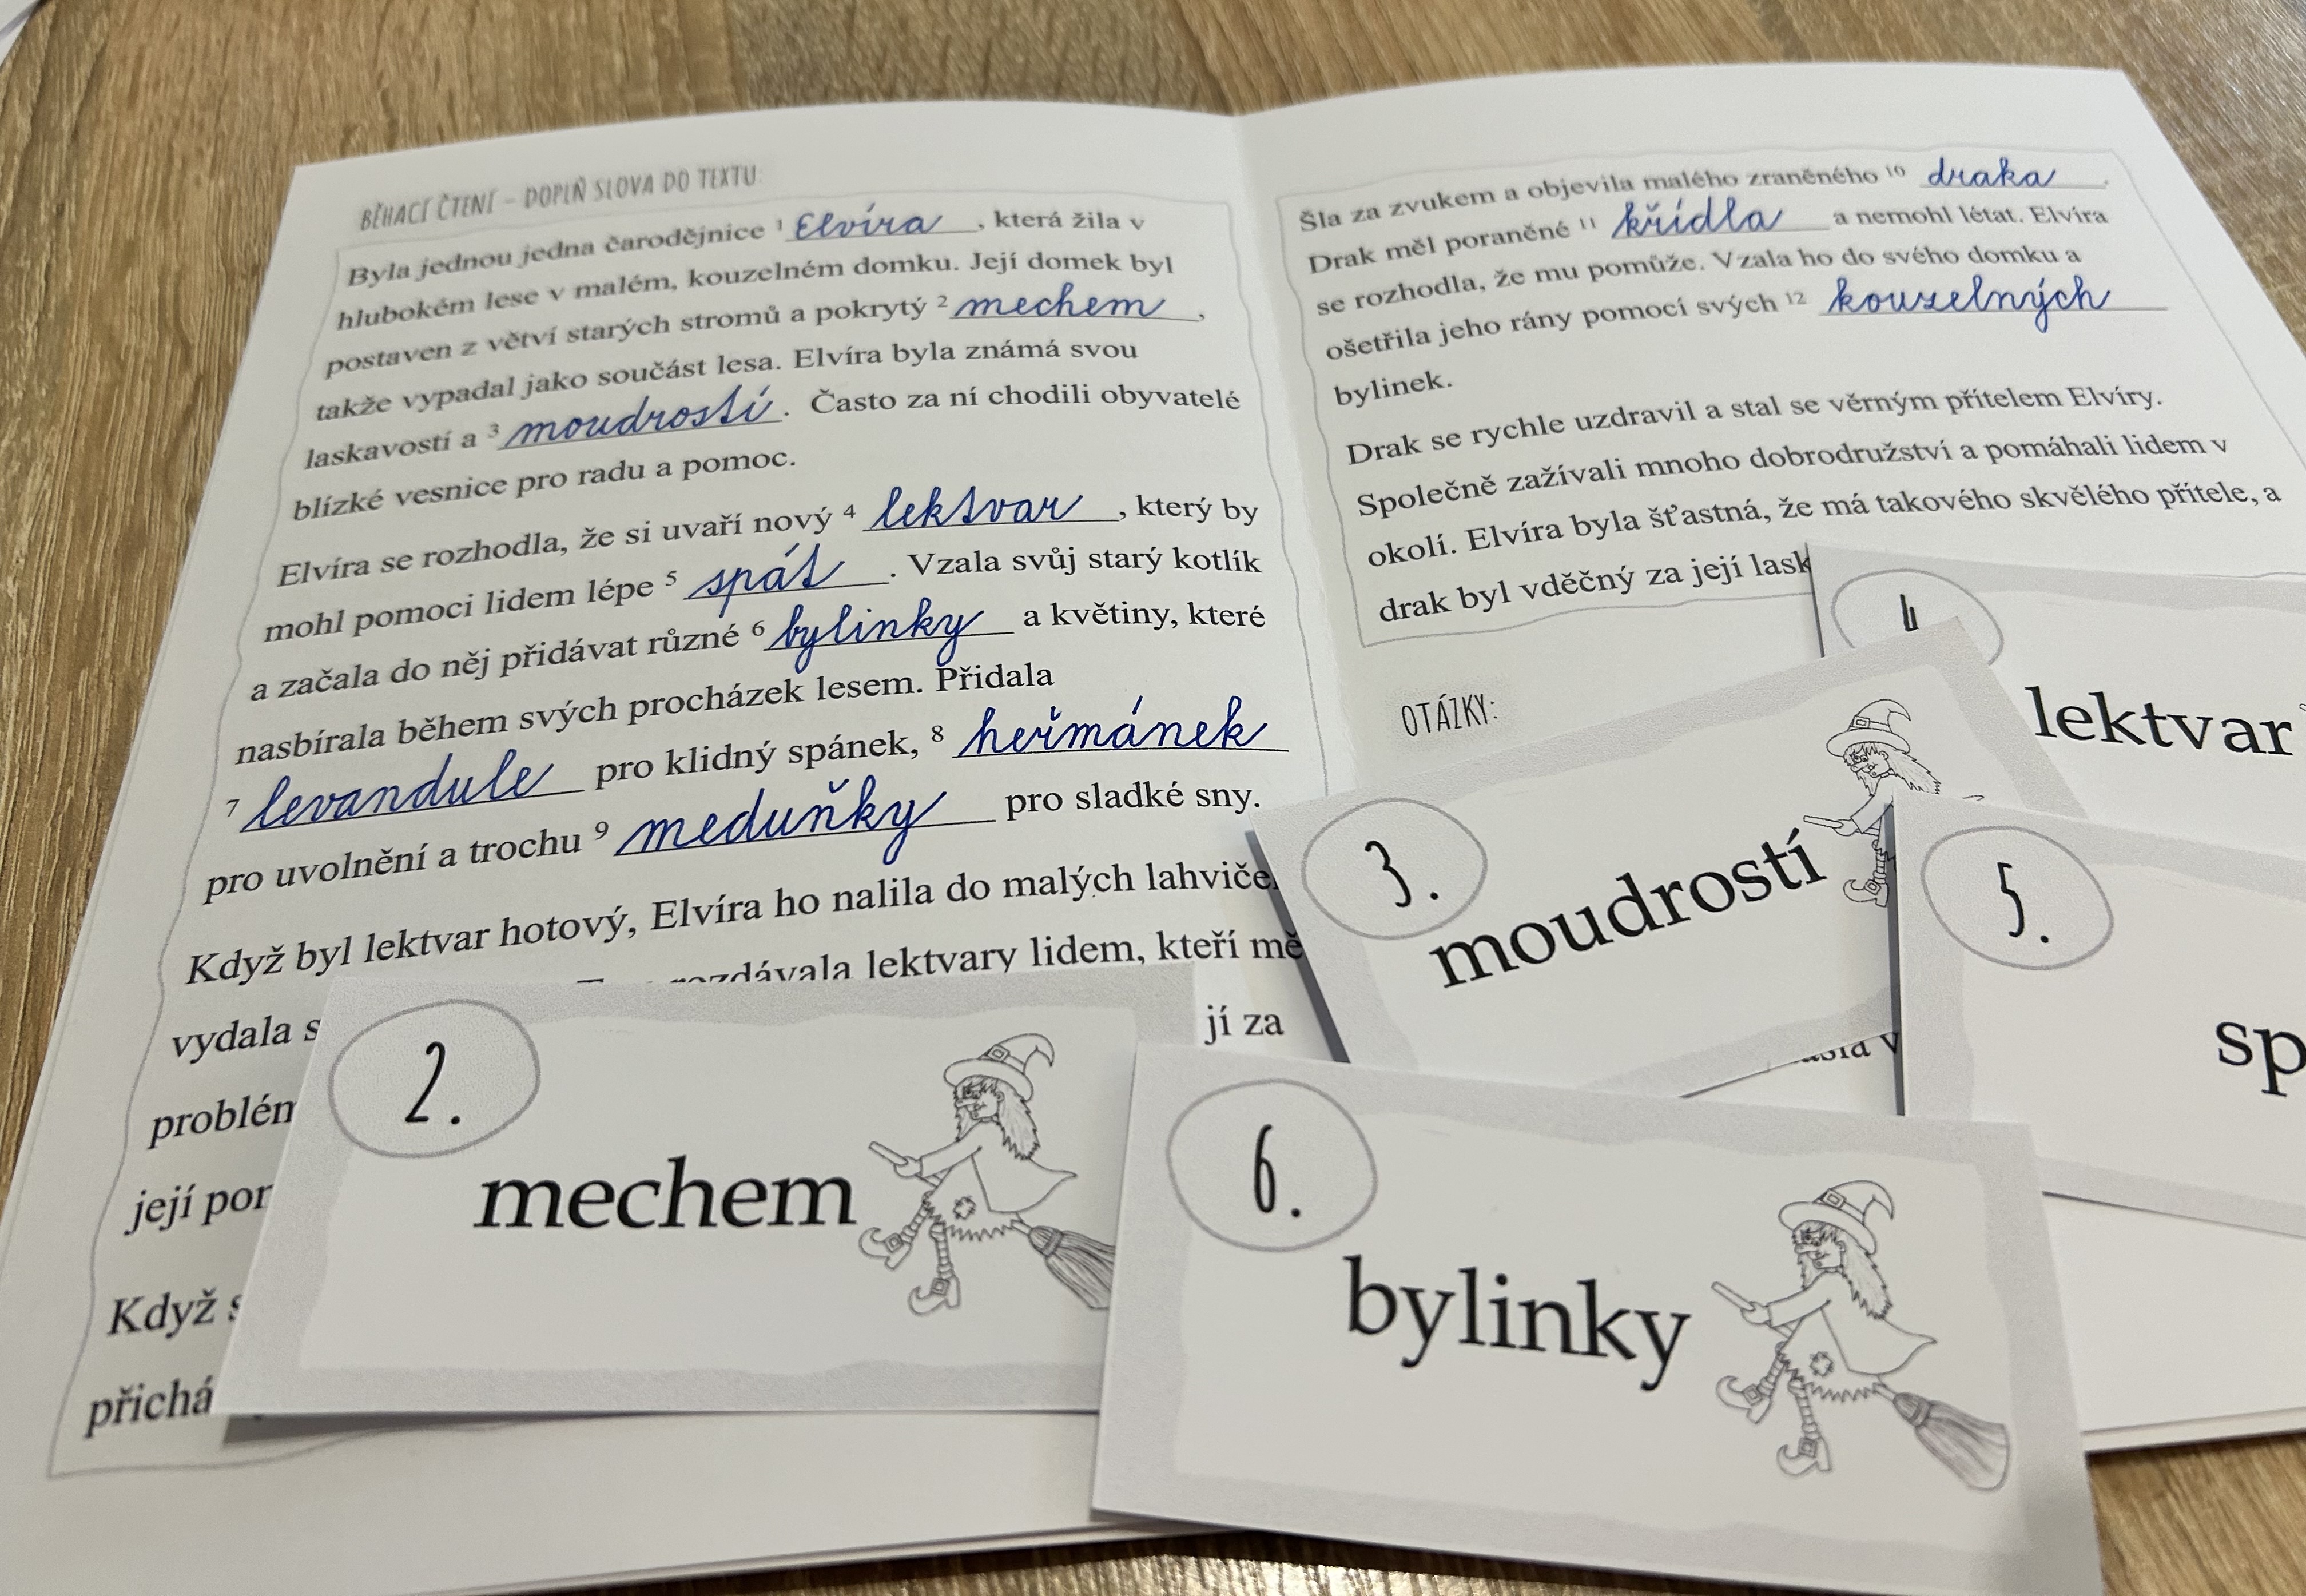 BĚHACÍ ČTENÍ – DOPLŇ SLOVA DO TEXTU:
Byla jednou jedna čarodějnice 1 Elvíra , která žila v
hlubokém lese v malém, kouzelném domku. Její domek byl
postaven z větví starých stromů a pokrytý 2 mechem ,
takže vypadal jako součást lesa. Elvíra byla známá svou
laskavostí a 3 moudrostí . Často za ní chodili obyvatelé
blízké vesnice pro radu a pomoc.
Elvíra se rozhodla, že si uvaří nový 4 lektvar , který by
mohl pomoci lidem lépe 5 spát . Vzala svůj starý kotlík
a začala do něj přidávat různé 6 bylinky a květiny, které
nasbírala během svých procházek lesem. Přidala
7 levandule pro klidný spánek, 8 heřmánek
pro uvolnění a trochu 9 meduňky pro sladké sny.
Když byl lektvar hotový, Elvíra ho nalila do malých
vydala rozdávala lektvary lidem, kteří
jí za
její
Když
Šla za zvukem a objevila malého zraněného 10 draka .
Drak měl poraněné 11 křídla a nemohl létat. Elvíra
se rozhodla, že mu pomůže. Vzala ho do svého domku a
ošetřila jeho rány pomocí svých 12 kouzelných
bylinek.
Drak se rychle uzdravil a stal se věrným přítelem Elvíry.
Společně zažívali mnoho dobrodružství a pomáhali lidem v
okolí. Elvíra byla šťastná, že má takového skvělého přítele, a
drak byl vděčný za její
OTÁZKY:
4
lektvar
3.
moudrostí
5.
sp
2.
mechem
6.
bylinky